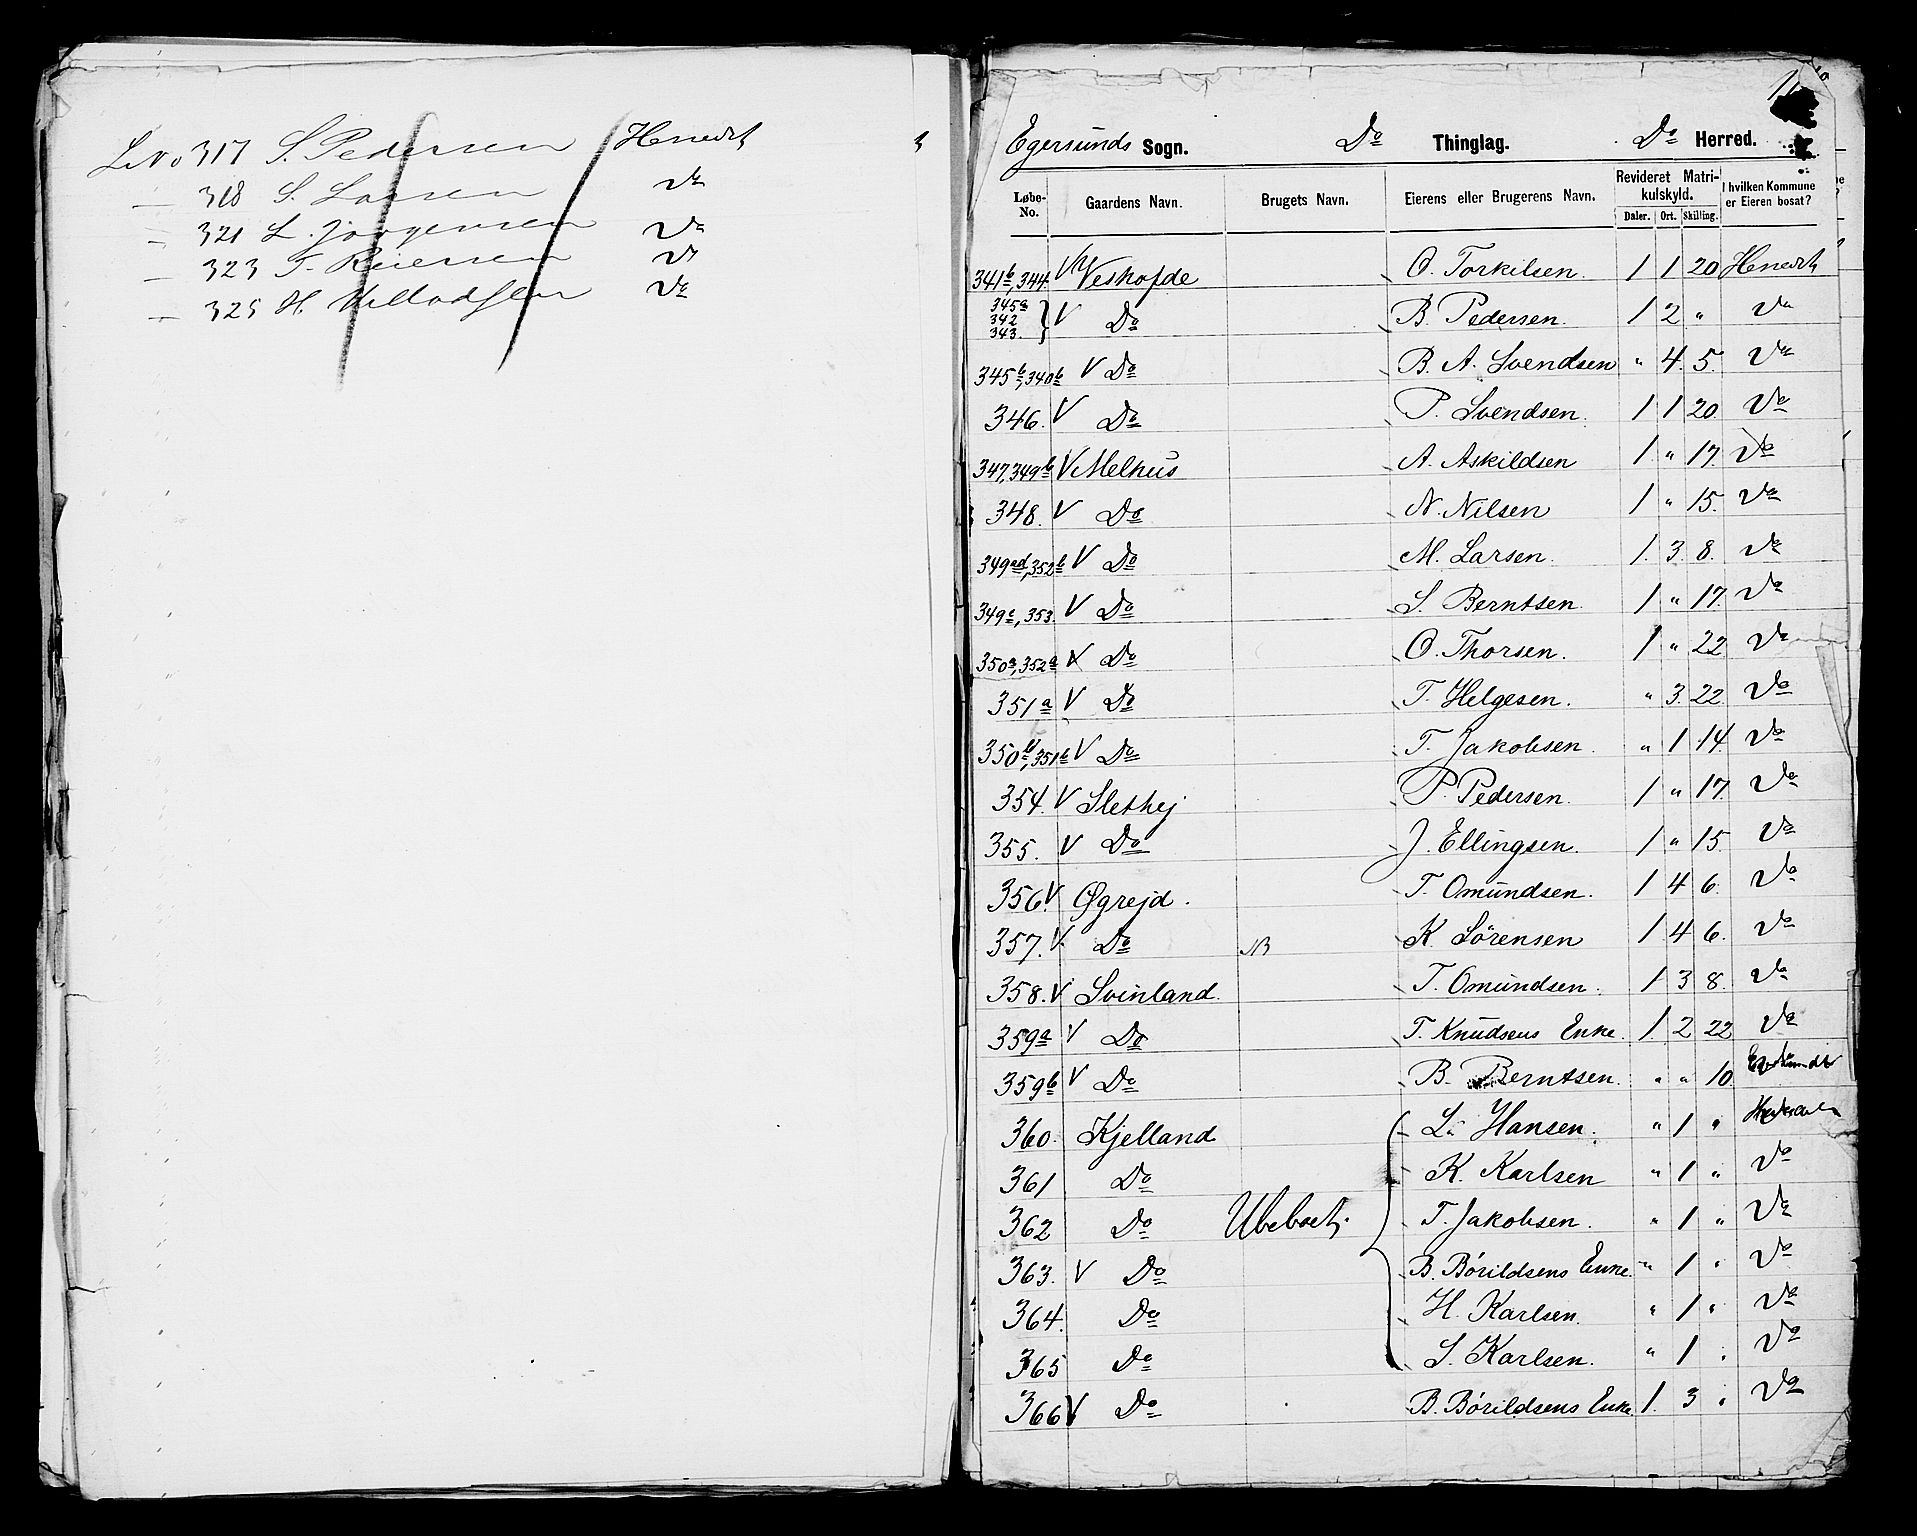 LNo 317 S. Pedersen Henedt
— 318 S. Larsen Do
— 321 L. Jörgensen Do
— 323 T. Reiersen Do
— 325 H. Do
Egersunds Sogn. Do Thinglag. Do Herred.
Løbe-No. Gaardens Navn. Brugets Navn. Eierens eller Brugerens Navn. Revideret Matrikulskyld. Daler. Ort. Skilling. I hvilken Kommune er Eieren bosat?
341b, 344. V Veshofde O. Torkilsen. 1 1 20 Henedt
345a 342 343. } V Do B. Pedersen. 1 2 " Do
345b, 340b V Do B. A. Svendsen " 4. 5. Do
346. V Do P. Svendsen. 1 1 20. Do
347, 349b V Melhus A. Askildsen 1. " 17. Do
348. V Do N. Nilsen 1 " 15. Do
349ad, 352b V Do M. Larsen. 1. 3. 8. Do
349c, 353. V Do S. Berntsen. 1 " 17. Do
350a, 352a V Do O. Thorsen. 1 " 22. Do
351a V Do T. Helgesen. " 3. 22. Do
350b, 351b V Do T. Jakobsen. " 1 14. Do
354. V Slethej P. Pedersen. 1 " 17. Do
355. V Do J. Ellingsen. 1 " 15. Do
356. V Øgrejd. T. Omundsen. 1 4 6. Do
357. V Do NB K. Sörensen 1 4 6. Do
358. V Svinland. T. Omundsen. 1 3 8. Do
359a V Do T. Knudsens Enke. 1. 2 22 Do
359b V Do B. Berntsen. " " 10
360. Kjelland L. Hansen. " 1 "
361 Do K. Karlsen " 1 " Do
362 Do Ubeboet. T. Jakobsen. " 1 " Do
363. V Do B. Börildsens Enke. " 1 " Do
364. Do H. Karlsen. " 1 " Do
365 Do S. Karlsen. " 1 . Do
366 V Do B. Börildsens Enke. 1. 3 " Do